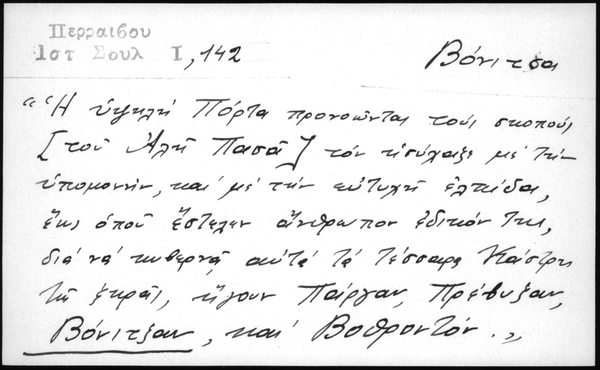 Περραιβου
1στ Σουλ I, 142
Βόνιτσα
"Ἡ ὑψηλὴ Πόρτα προνοῶντας τοὺς σκοποὺς
[τοῦ Ἀλῆ Πασᾶ] τὸν ἡσύχαζε μὲ τὴν
ὑπομονήν, καὶ μὲ τὴν εὐτυχῆ ἐλπίδα,
ἕως ὁποῦ ἔστειλεν ἄνθρωπον ἐδικόν της,
διὰ νὰ κυβερνᾷ αὐτὰ τὰ τέσσαρα Κάστρη
τῆς ξηρᾶς, ἤγουν Πάργαν, Πρέβυζαν,
Βόνιτζαν, καὶ Βοθροντόν."